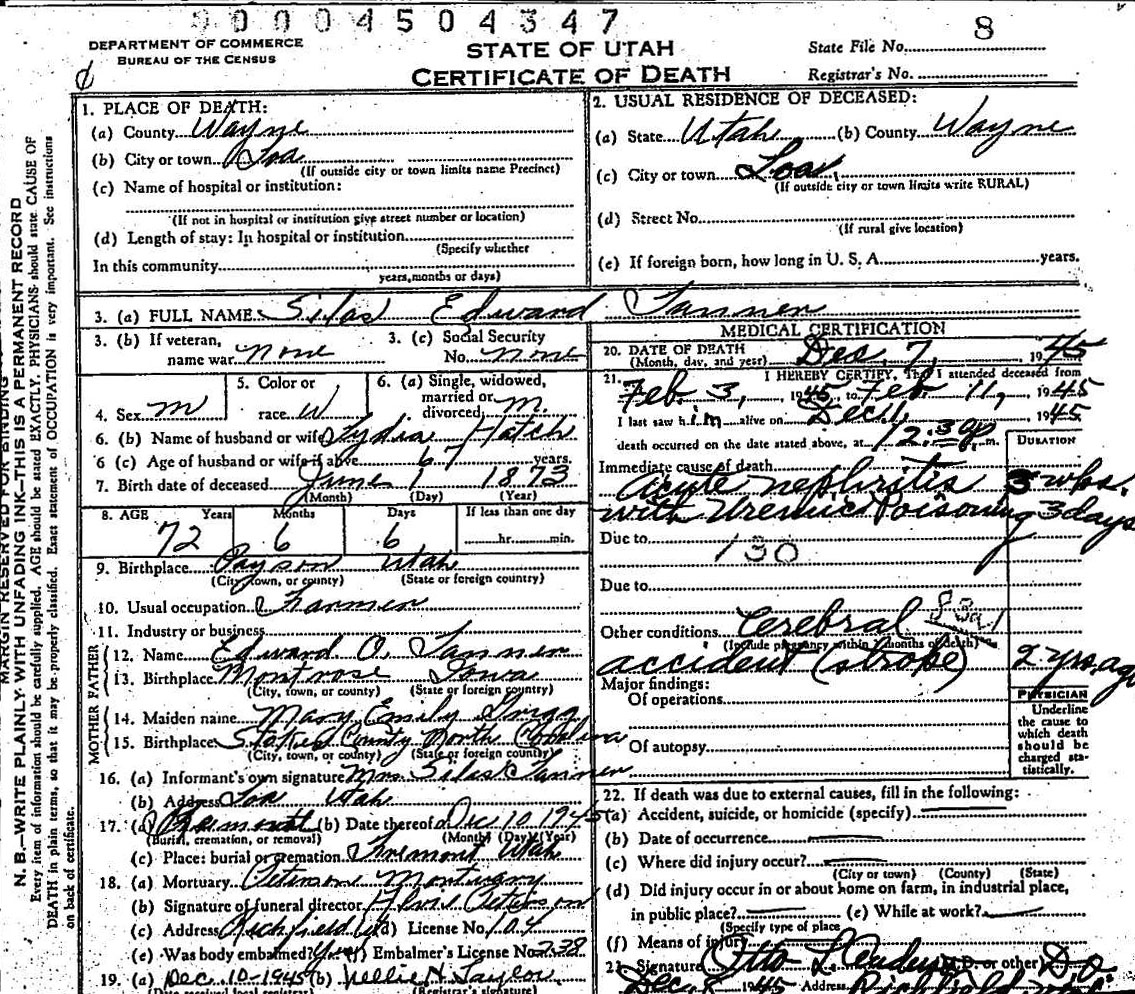 0004504347
8
DEPARTMENT OF COMMERCE
BUREAU OF THE CENSUS
STATE OF UTAH
CERTIFICATE OF DEATH
State File No.
Registrar's No.
MARGIN RESERVED FOR BINDING
N. B.—WRITE PLAINLY WITH UNFADING INK—THIS IS A PERMANENT RECORD
Every item of information should be carefully supplied. AGE should be stated EXACTLY. PHYSICIANS should state CAUSE OF
DEATH in plain terms, so that it may be properly classified. Exact statement of OCCUPATION is very important. See instructions
on back of certificate.
1. PLACE OF DEATH:
(a) County Wayne
(b) City or town Loa
(If outside city or town limits name Precinct)
(c) Name of hospital or institution:
(If not in hospital or institution give street number or location)
(d) Length of stay: In hospital or institution
(Specify whether
In this community
years, months or days)
2. USUAL RESIDENCE OF DECEASED:
(a) State Utah (b) County Wayne
(c) City or town Loa,
(If outside city or town limits write RURAL)
(d) Street No.
(If rural give location)
(e) If foreign born, how long in U. S. A. years.
3. (a) FULL NAME Silas Edward Tanner
3. (b) If veteran, name war none
3. (c) Social Security No. none
4. Sex M
5. Color or race W
6. (a) Single, widowed, married or divorced M.
6. (b) Name of husband or wife Lydia Hatch
6 (c) Age of husband or wife if alive 67 years.
7. Birth date of deceased June 1 1873
(Month) (Day) (Year)
8. AGE Years Months Days If less than one day
72 6 6 hr. min.
9. Birthplace Payson Utah
(City, town, or county) (State or foreign country)
10. Usual occupation Farmer
11. Industry or business
FATHER
12. Name Edward O. Tanner
13. Birthplace Montrose Iowa
(City, town, or county) (State or foreign country)
MOTHER
14. Maiden name Mary Emily Grigg
15. Birthplace Stokes County North Carolina
(City, town, or county) (State or foreign country)
16. (a) Informant's own signature Mrs. Silas E Tanner
(b) Address Loa Utah
17. (a) (b) Date thereof Dec 10 1945
(Burial, cremation, or removal) (Month) (Day) (Year)
(c) Place: burial or cremation Fremont Utah
18. (a) Mortuary Peterson Mortuary
(b) Signature of funeral director Peterson
(c) Address Richfield Ut (d) License No. 104
(e) Was body embalmed? Yes (f) Embalmer's License No. 238
19. (a) Dec. 10-1945 (b) Nellie H. Taylor
(Date received local registrar) (Registrar's signature)
MEDICAL CERTIFICATION
20. DATE OF DEATH Dec. 7, 1945
(Month, day, and year)
21. I HEREBY CERTIFY, That I attended deceased from
Feb. 3, 1945, to Feb. 11, 1945
I last saw him alive on Dec 1, 1945
death occurred on the date stated above, at 12:30 p. m.
DURATION
Immediate cause of death
Acute nephritis 3 wks.
with Uremic Poisoning 3 days
Due to 130
Due to
Other conditions Cerebral
(Include pregnancy within 3 months of death)
accident (stroke) 2 yrs. ago
Major findings:
Of operations
Of autopsy
PHYSICIAN
Underline
the cause to
which death
should be
charged sta-
tistically.
22. If death was due to external causes, fill in the following:
(a) Accident, suicide, or homicide (specify)
(b) Date of occurrence
(c) Where did injury occur?
(City or town) (County) (State)
(d) Did injury occur in or about home on farm, in industrial place,
in public place? (e) While at work?
(Specify type of place
(f) Means of injury
23. Signature Otto M.D. or other D.O
Dec. 8 1945 Address Richfield